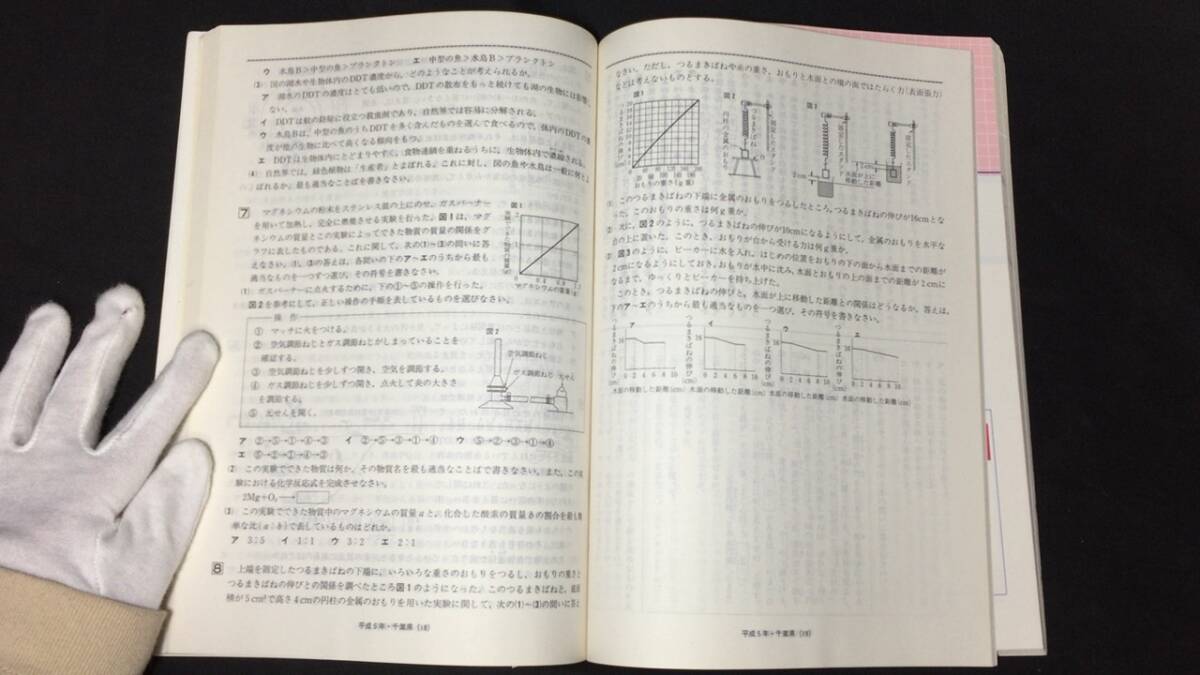 ウ 水鳥B＞中型の魚＞プランクトン エ 中型の魚＞水鳥B＞プランクトン
(3) 図の湖水や生物体内のDDT濃度から、どのようなことが考えられるか。
ア 湖水のDDTの濃度はとても低いので、DDTの散布をもっと続けても湖の生物には影響し
ない。
イ DDTは蚊の防除に役立つ殺虫剤であり、自然界では容易に分解される。
ウ 水鳥Bは、中型の魚のうちDDTを多く含んだものを選んで食べるので、体内のDDTの濃
度が他の生物に比べて高くなる傾向をもつ。
エ DDTは生物体内にとどまりやすく、食物連鎖を重ねるうちに、生物体内で濃縮される。
(4) 自然界では、緑色植物は「生産者」とよばれる。これに対し、図の魚や水鳥は一般に何とよ
ばれるか。最も適当なことばを書きなさい。
7 マグネシウムの粉末をステンレス皿の上にのせ、ガスバーナー
を用いて加熱し、完全に燃焼させる実験を行った。図1は、マグ
ネシウムの質量とこの実験によってできた物質の質量の関係をグ
ラフに表したものである。これに関して、次の(1)~(3)の問いに答
えなさい。(1)、(3)の答えは、各問いの下のア~エのうちから最も
適当なものを一つずつ選び、その符号を書きなさい。
図1
マグネシウムの質量(g)
(1) ガスバーナーに点火するために、下の①~⑤の操作を行った。
図2を参考にして、正しい操作の手順を表しているものを選びなさい。
操作
① マッチに火をつける。
② 空気調節ねじとガス調節ねじがしまっていることを
確認する。
③ 空気調節ねじを少しずつ開き、空気を調節する。
④ ガス調節ねじを少しずつ開き、点火して炎の大きさ
を調節する。
⑤ 元せんを開く。
図2
空気調節ねじ
ガス調節ねじ 元せん
ア ②→⑤→①→④→③ イ ②→⑤→③→①→④ ウ ⑤→②→③→①→④
エ ⑤→②→①→④→③
(2) この実験でできた物質は何か、その物質名を最も適当なことばで書きなさい。また、この実
験における化学反応式を完成させなさい。
2Mg+O₂→
(3) この実験でできた物質中のマグネシウムの質量aと、化合した酸素の質量bの割合を最も簡
単な比(a:b)で表しているものはどれか。
ア 3:5 イ 1:1 ウ 3:2 エ 2:1
8 上端を固定したつるまきばねの下端に、いろいろな重さのおもりをつるし、おもりの重さと
つるまきばねの伸びとの関係を調べたところ図1のようになった。このつるまきばねと、底面
積が5cm²で高さ4cmの円柱の金属のおもりを用いた実験に関して、次の(1)~(3)の問いに答え
平成5年・千葉県(18)
なさい。ただし、つるまきばねや糸の重さ、おもりと水面との境の面ではたらく力(表面張力)
などは考えないものとする。
図1
つるまきばねの伸び(cm)
20 60 100 140 180
おもりの重さ(g重)
図2
固定したスタンド
つるまきばね
円柱の金属のおもり
台
図3
固定したスタンド
2cm
水面が上に
移動した距離
2cm
(1) このつるまきばねの下端に金属のおもりをつるしたところ、つるまきばねの伸びが16cmとな
った。このおもりの重さは何g重か。
(2) 次に、図2のように、つるまきばねの伸びが10cmになるようにして、金属のおもりを水平な
台の上に置いた。このとき、おもりが台から受ける力は何g重か。
(3) 図3のように、ビーカーに水を入れ、はじめの位置をおもりの下の面から水面までの距離が
2cmになるようにしておき、おもりが水中に沈み、水面とおもりの上の面までの距離が2cmに
なるまで、ゆっくりとビーカーを持ち上げた。
このとき、つるまきばねの伸びと、水面が上に移動した距離との関係はどうなるか。答えは、
下のア~エのうちから最も適当なものを一つ選び、その符号を書きなさい。
ア イ ウ エ
つるまきばねの伸び(cm) つるまきばねの伸び(cm) つるまきばねの伸び(cm) つるまきばねの伸び(cm)
0 2 4 6 8 10 0 2 4 6 8 10 0 2 4 6 8 10 0 2 4 6 8 10
水面の移動した距離(cm) 水面の移動した距離(cm) 水面の移動した距離(cm) 水面の移動した距離(cm)
平成5年・千葉県(19)